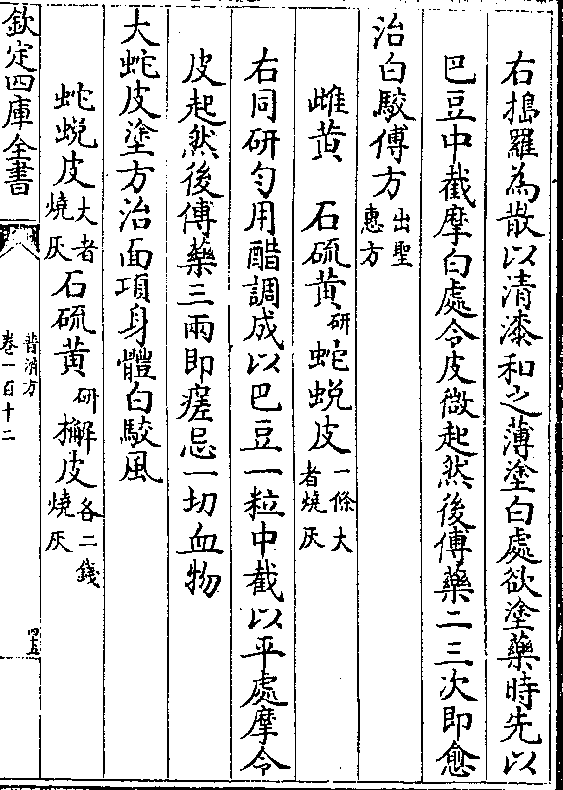 右搗羅為散以清漆和之薄塗白處欲塗藥時先以
巴豆中截摩白處令皮微起然後傅藥二三次即愈
治白駮傅方出聖惠方
雌黄 石硫黄研 蛇蜕皮一條大者燒灰
右同研勻用醋調成以巴豆一粒中截以平處摩令
皮起然後傅藥三兩即瘥忌一切血物
大蛇皮塗方治面項身體白駮風
蛇蜕皮大者燒灰 石硫黄研 獬皮各二錢燒灰
欽定四庫全書 普濟方 卷一百十二